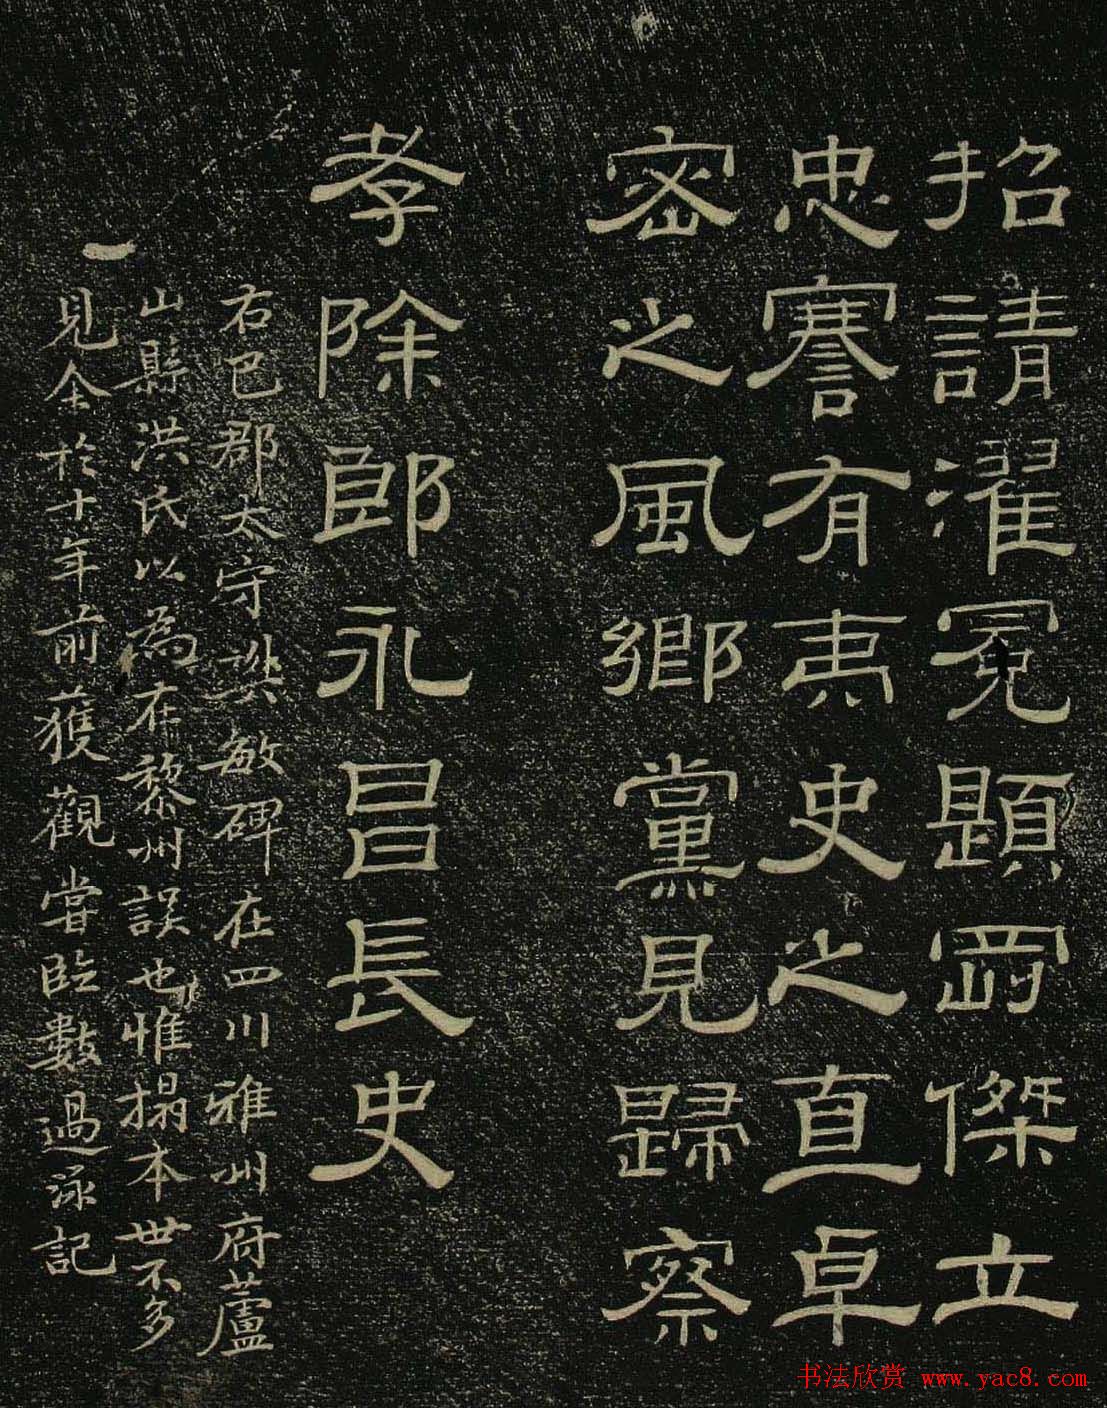 招請濯冕題剛傑立
忠謇有夷史之直卓
密之風鄉黨見歸察
孝除郎永昌長史
右巴郡太守樊敏碑在四川雅州府蘆
山縣洪氏以為在黎州誤也惟搨本世不多
見余於十年前獲觀嘗臨數過泳記
书法欣赏 www.yac8.com